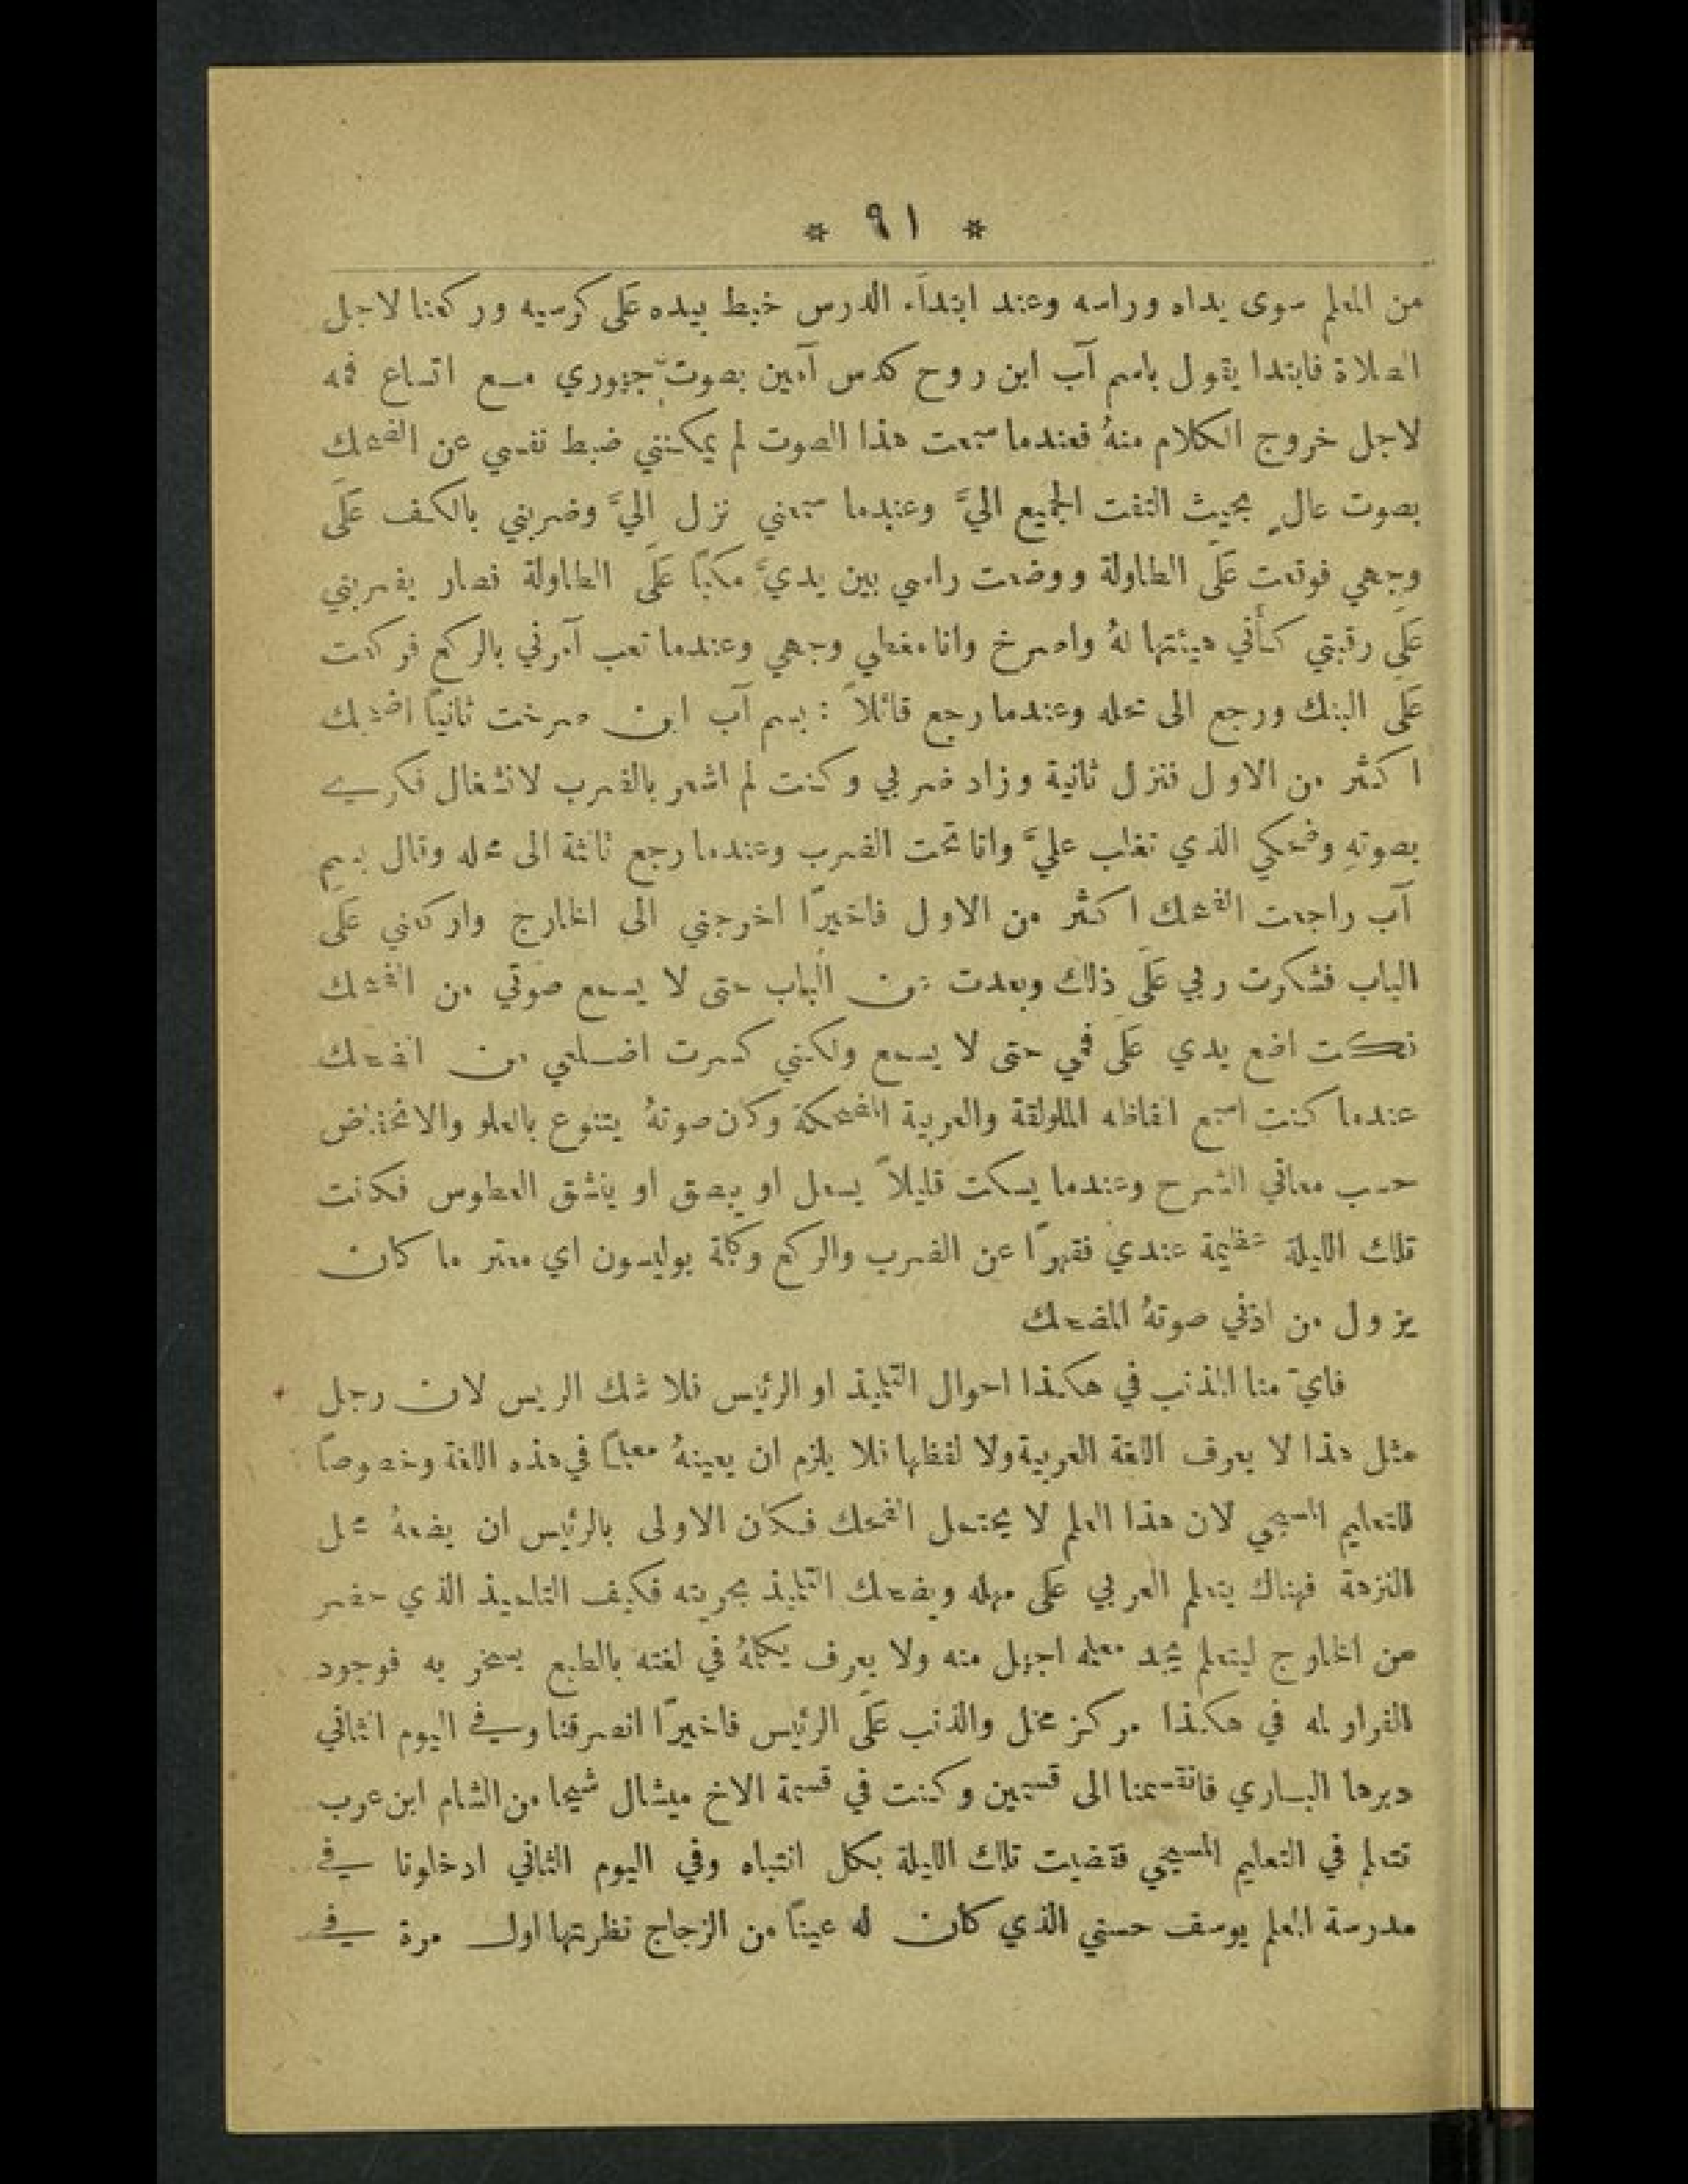 * ٩١ *
من المعلم سوى يداه وراسه وعند ابتدآء الدرس خبط بيده على كرسيه وركعنا لاجل
الصلاة فابتدا يقول باسم آب ابن روح كدس آمين بصوت جهوري مع اتساع فمه
لاجل خروج الكلام منهُ فعندما سمعت هذا الصوت لم يمكنني ضبط نفسي عن الضحك
بصوت عالٍ بحيث التفت الجميع اليَّ وعندما سمعني نزل اليَّ وضربني بالكف على
وجهي فوقعت على الطاولة ووضعت راسي بين يديَّ مكبًا على الطاولة فصار يضربني
على رقبتي كأني هيئتها لهُ واصرخ وانا مغطي وجهي وعندما تعب آمرني بالركع فركعت
على البنك ورجع الى محله وعندما رجع قائلاً : بسم آب ابن صرخت ثانيًا اضحك
اكثر من الاول فنزل ثانية وزاد ضربي وكنت لم اشعر بالضرب لانشغال فكري
بصوتهِ وضحكي الذي تغلب عليَّ وانا تحت الضرب وعندما رجع ثالثة الى محله وقال بسم
آب راجعت الضحك اكثر من الاول فاخيرًا اخرجني الى الخارج واركعني على
الباب فشكرت ربي على ذلك وبعدت عن الباب حتى لا يسمع صوتي من الضحك
فكنت اضع يدي على فمي حتى لا يسمع ولكنني كسرت اضلعي من الضحك
عندما كنت اسمع الفاظه الملولقة والعربية المضحكة وكان صوتهُ يتنوع بالعلو والانخفاض
حسب معاني الشرح وعندما يسكت قليلاً يسعل او يبصق او ينشق العطوس فكانت
تلك الليلة عظيمة عندي فقهرًا عن الضرب والركع وكلمة بوليسون اي معتر ما كان
يزول من اذني صوتهُ المضحك
فايّ منا المذنب في هكذا احوال التلميذ او الرئيس فلا شك الريس لان رجل
مثل هذا لا يعرف اللغة العربية ولا لفظها فلا يلزم ان يعينهُ معلمًا في هذه اللغة وخصوصًا
للتعليم المسيحي لان هذا العلم لا يحتمل الضحك فكان الاولى بالرئيس ان يضعهُ محل
النزهة فهناك يتعلم العربي على مهله ويضحك التلميذ بحريته فكيف التلميذ الذي حضر
من الخارج ليتعلم يجد معلمه اجهل منه ولا يعرف يكلمهُ في لغته بالطبع يسخر به فوجود
الفرار له في هكذا مركز مخل والذنب على الرئيس فاخيرًا انصرفنا وفي اليوم الثاني
دبرها الباري فانقسمنا الى قسمين وكنت في قسمة الاخ ميشال شيحا من الشام ابن عرب
نتعلم في التعليم المسيحي فقضيت تلك الليلة بكل انتباه وفي اليوم الثاني ادخلونا في
مدرسة المعلم يوسف حسني الذي كان له عينًا من الزجاج نظرتها اول مرة في